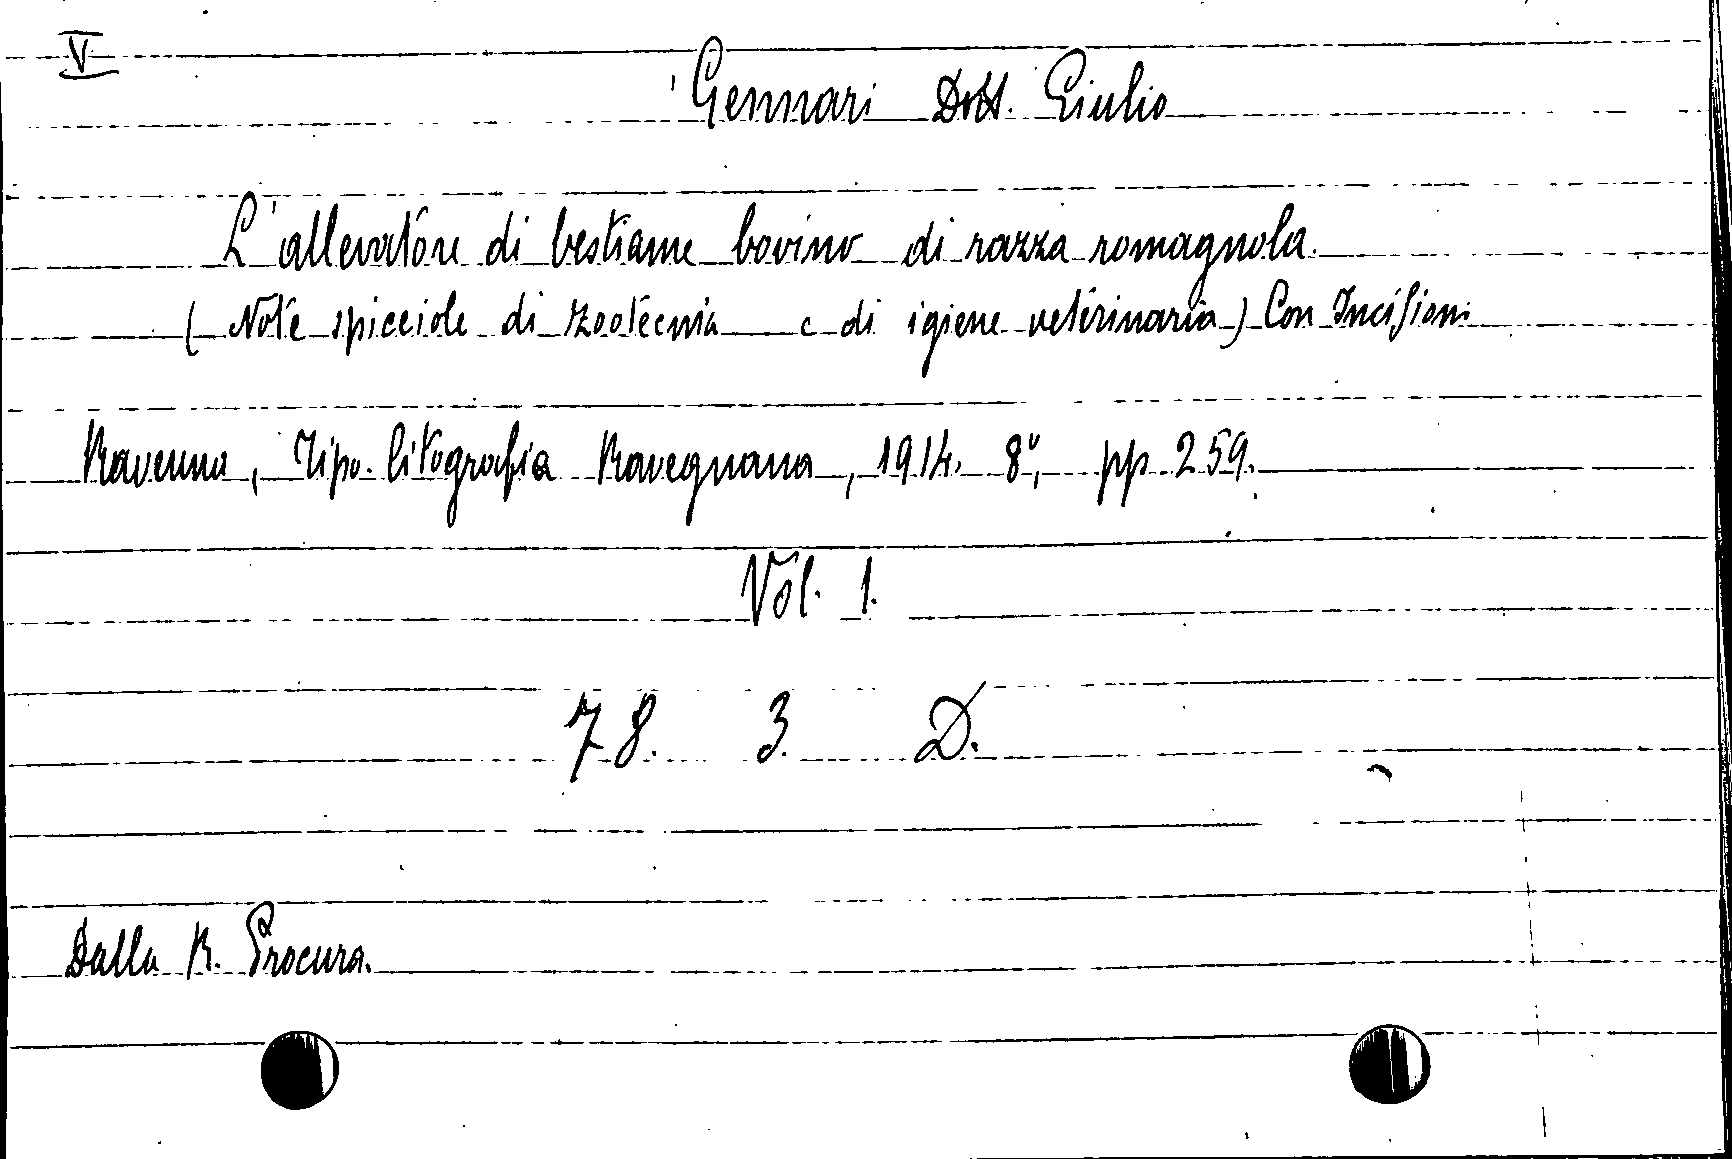 V
Gennari Dott. Giulio
L'allevatore di bestiame bovino di razza romagnola.
(Note spicciole di zootecnia e di igiene veterinaria) Con Incisioni
Ravenna, Tipo-litografia Ravegnana, 1914. 8°, pp. 259.
Vol. 1.
78. 3. D.
Dalla R. Procura.